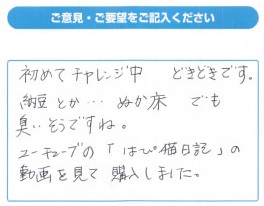 ご意見・ご要望をご記入ください
初めてチャレンジ中 どきどきです。
納豆とか… ぬか床 でも
臭いそうですね。
ユーチューブの「はぴ猫日記」の
動画を見て購入しました。